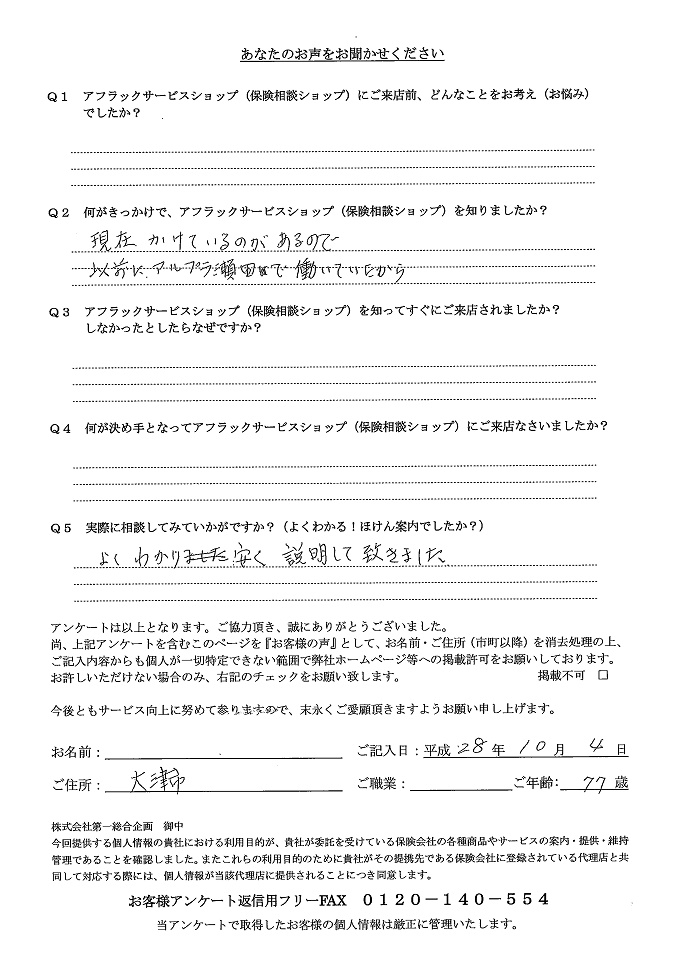 あなたのお声をお聞かせください
Q1 アフラックサービスショップ(保険相談ショップ)にご来店前、どんなことをお考え(お悩み)
でしたか?
Q2 何がきっかけで、アフラックサービスショップ(保険相談ショップ)を知りましたか?
現在 かけているのが あるので
以前に アルプラ瀬田で 働いていたから
Q3 アフラックサービスショップ(保険相談ショップ)を知ってすぐにご来店されましたか?
しなかったとしたらなぜですか?
Q4 何が決め手となってアフラックサービスショップ(保険相談ショップ)にご来店なさいましたか?
Q5 実際に相談してみていかがですか?(よくわかる!ほけん案内でしたか?)
よく わかりました安く 説明して致きました
アンケートは以上となります。ご協力頂き、誠にありがとうございました。
尚、上記アンケートを含むこのページを『お客様の声』として、お名前・ご住所(市町以降)を消去処理の上、
ご記入内容からも個人が一切特定できない範囲で弊社ホームページ等への掲載許可をお願いしております。
お許しいただけない場合のみ、右記のチェックをお願い致します。 掲載不可 □
今後ともサービス向上に努めて参りますので、末永くご愛顧頂きますようお願い申し上げます。
お名前: ご記入日:平成 28 年 10 月 4 日
ご住所: 大津市 ご職業: ご年齢: 77 歳
株式会社第一総合企画 御中
今回提供する個人情報の貴社における利用目的が、貴社が委託を受けている保険会社の各種商品やサービスの案内・提供・維持
管理であることを確認しました。またこれらの利用目的のために貴社がその提携先である保険会社に登録されている代理店と共
同して対応する際には、個人情報が当該代理店に提供されることにつき同意します。
お客様アンケート返信用フリーFAX 0120-140-554
当アンケートで取得したお客様の個人情報は厳正に管理いたします。